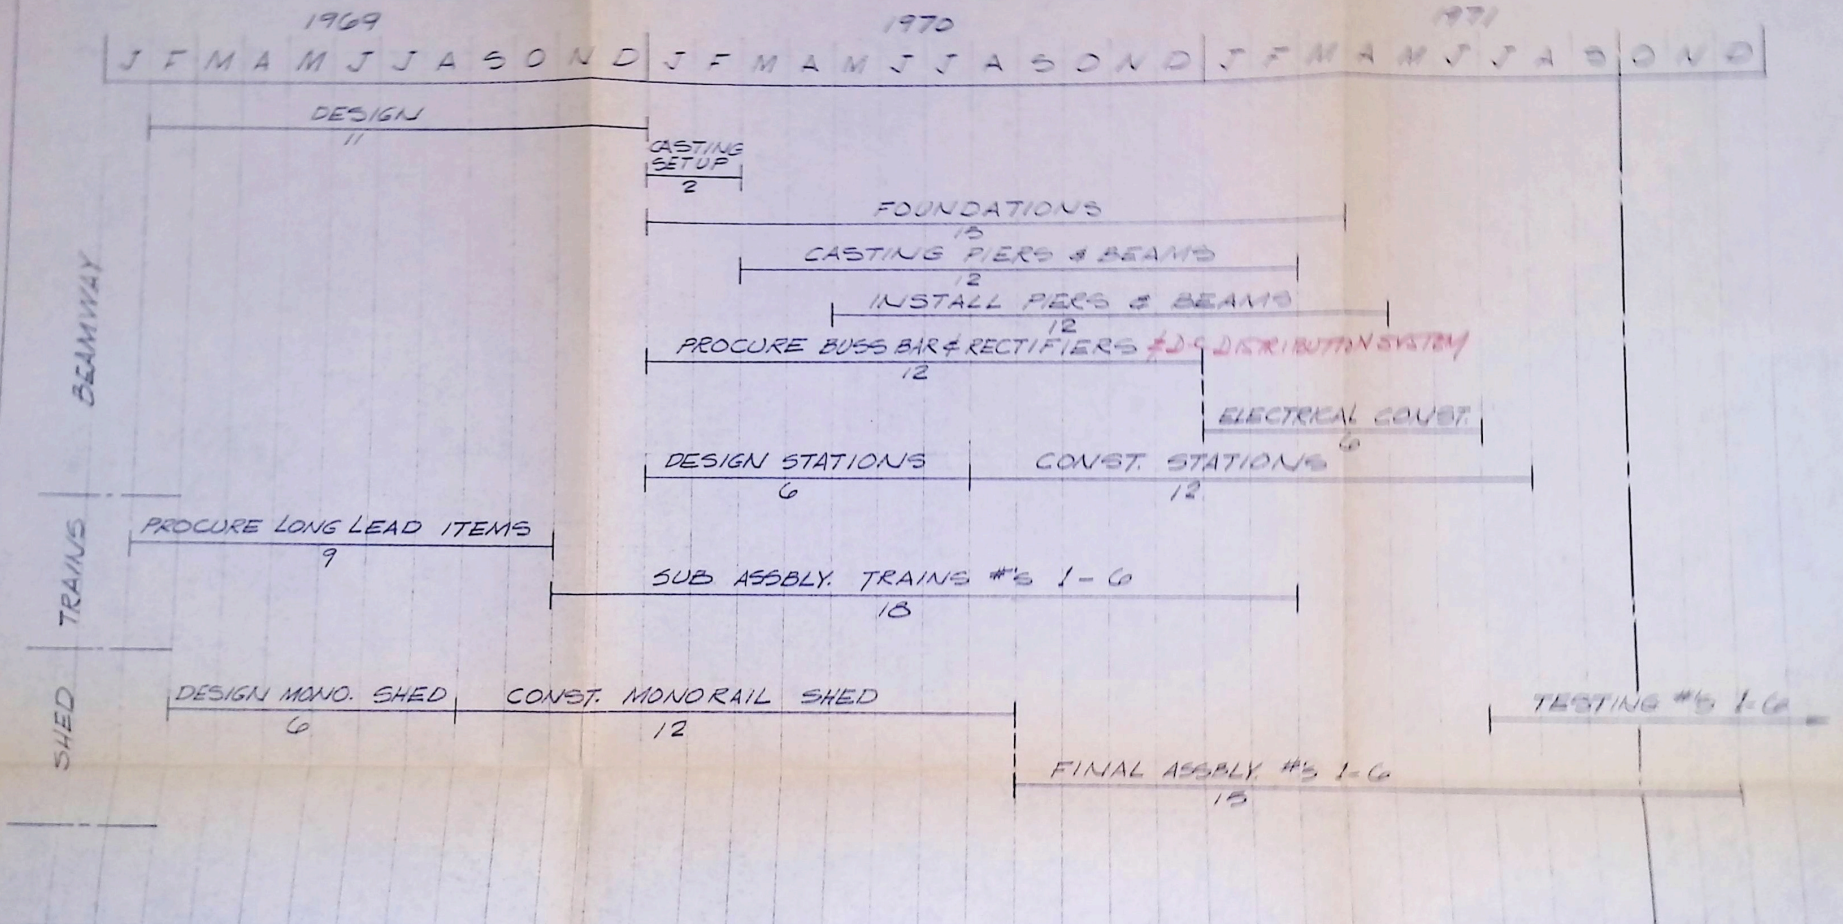 1969 1970 1971
J F M A M J J A S O N D J F M A M J J A S O N D J F M A M J J A S O N D
DESIGN
11
CASTING
SETUP
2
FOUNDATIONS
15
CASTING PIERS & BEAMS
12
INSTALL PIERS & BEAMS
12
PROCURE BUSS BAR & RECTIFIERS & DC DISTRIBUTION SYSTEM
12
ELECTRICAL CONST.
6
DESIGN STATIONS CONST. STATIONS
6 12
BEAMWAY
PROCURE LONG LEAD ITEMS
9
SUB ASSBLY. TRAINS #'S 1-6
18
TRAINS
DESIGN MONO. SHED CONST. MONORAIL SHED TESTING #'S 1-6
6 12
FINAL ASSBLY. #'S 1-6
15
SHED